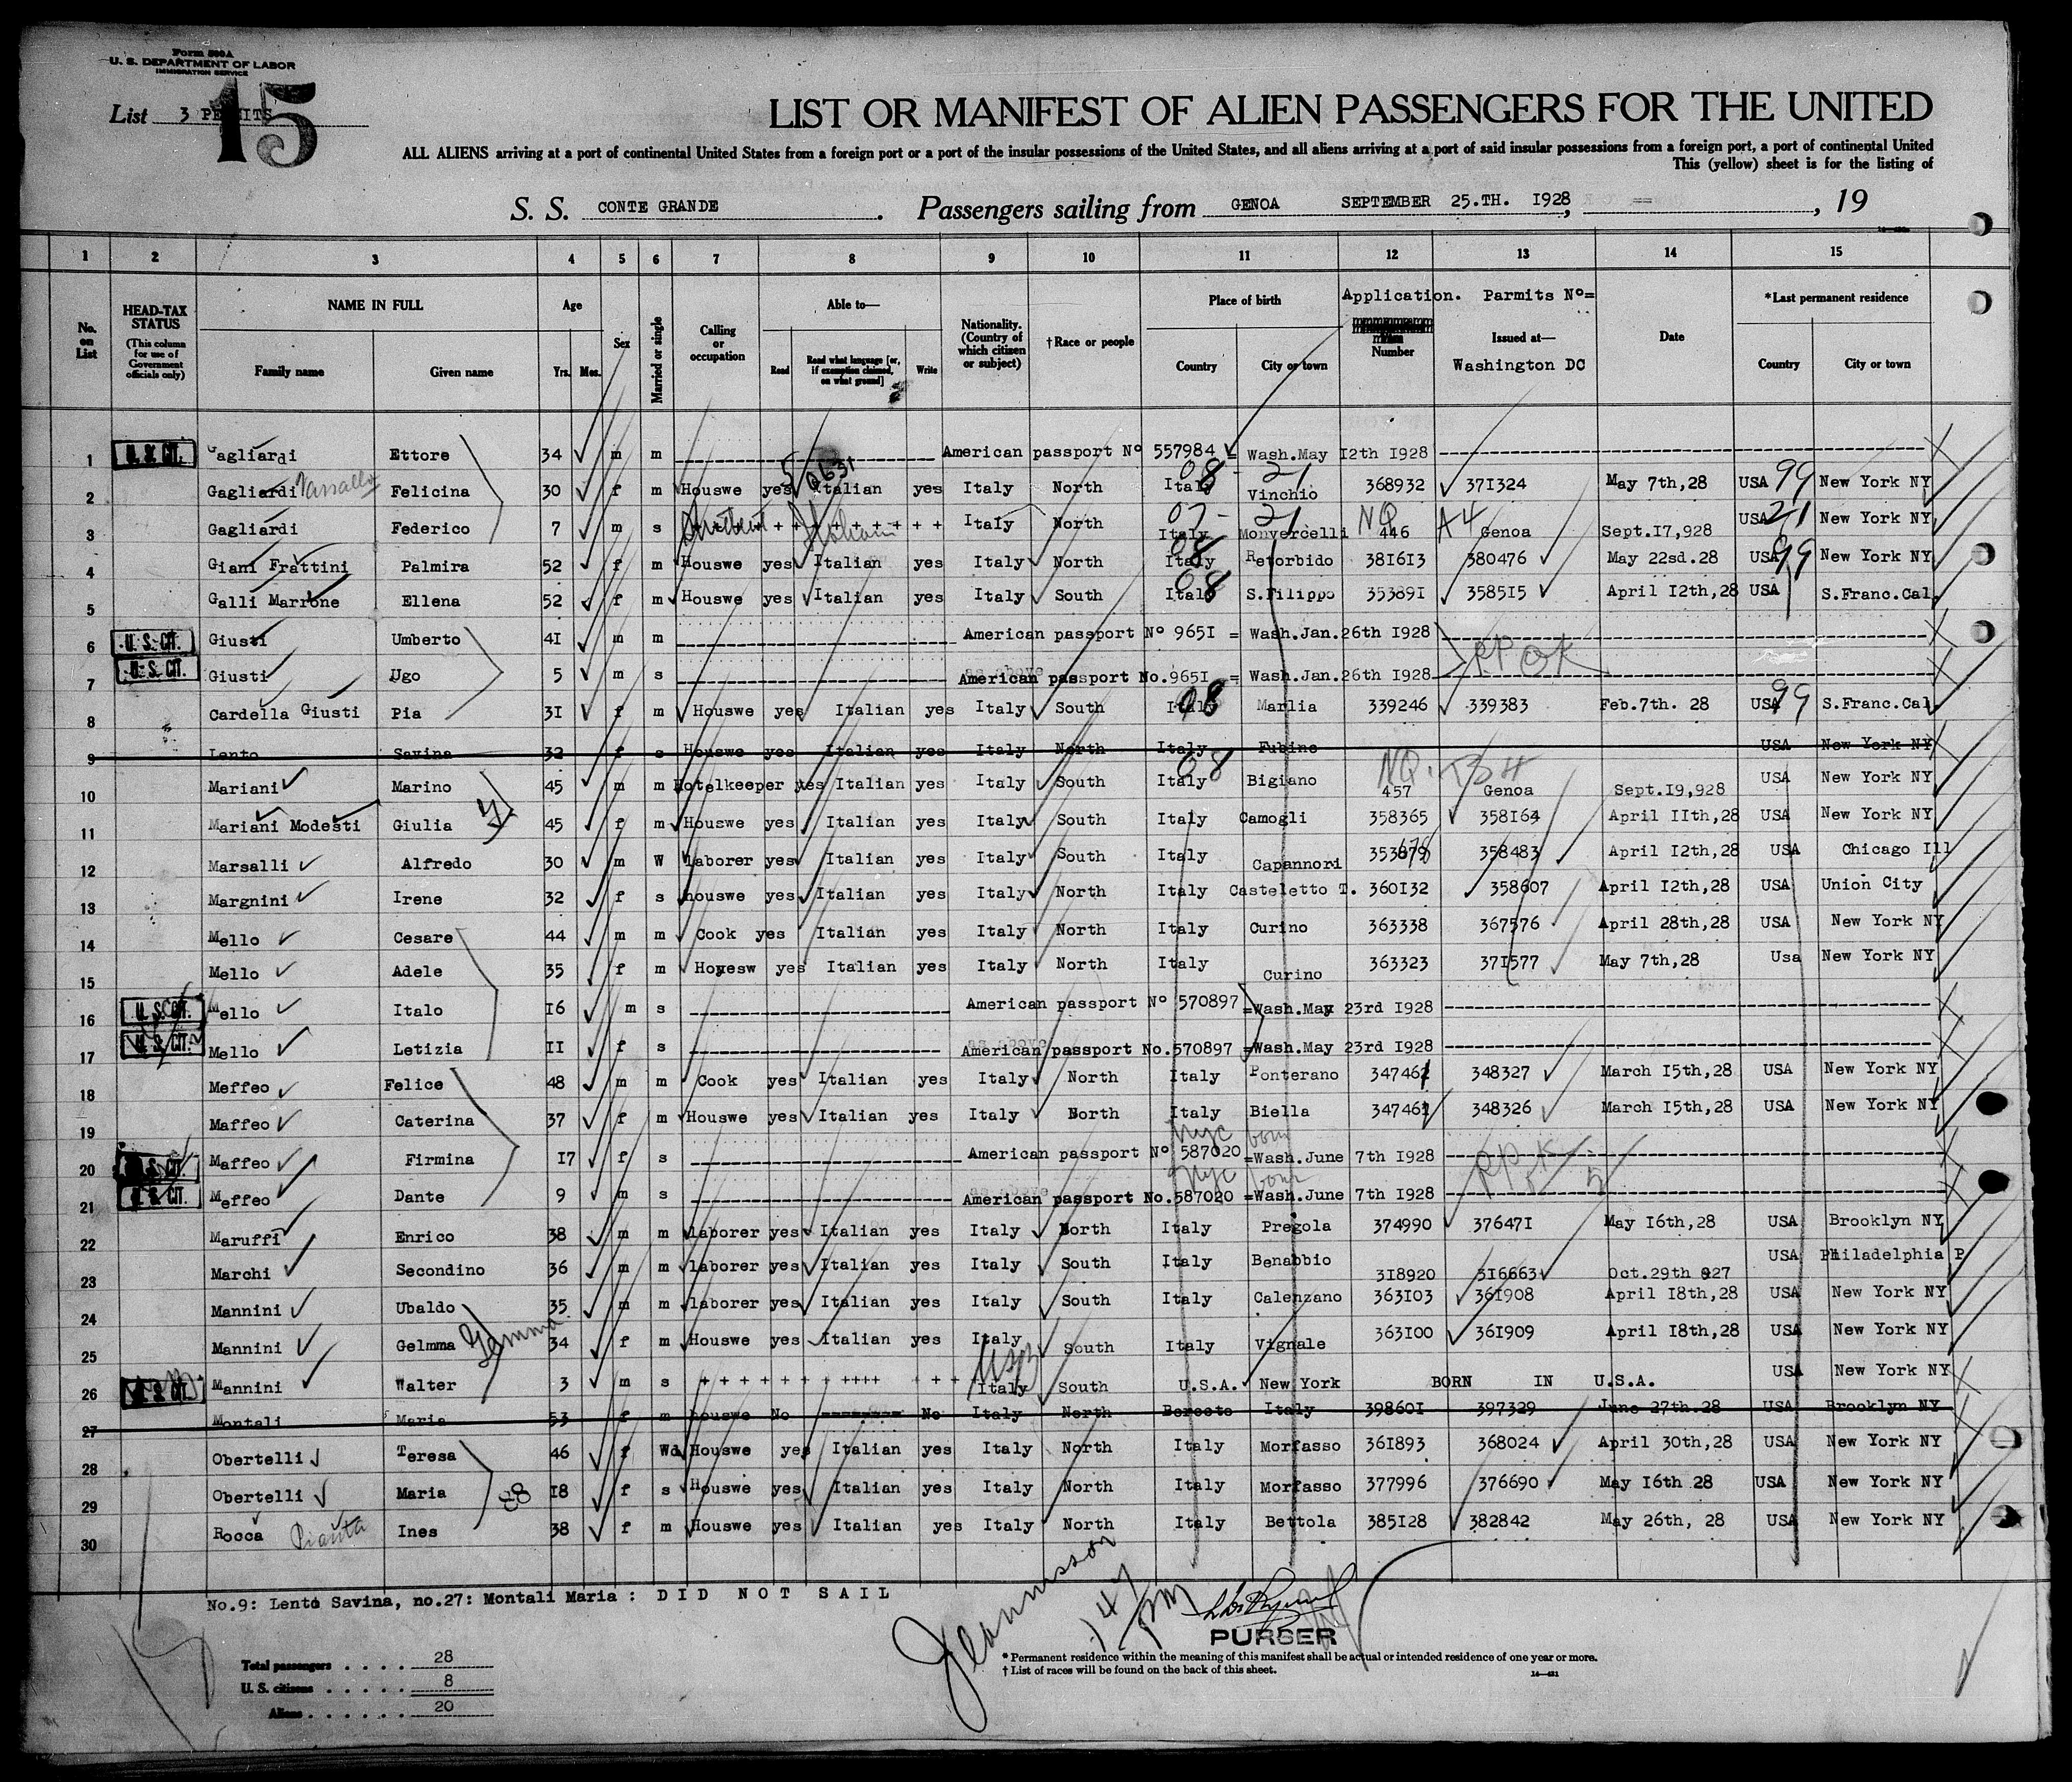 Form 500 A
U. S. DEPARTMENT OF LABOR
IMMIGRATION SERVICE
List 3 PERMITS
15
LIST OR MANIFEST OF ALIEN PASSENGERS FOR THE UNITED
ALL ALIENS arriving at a port of continental United States from a foreign port or a port of the insular possessions of the United States, and all aliens arriving at a port of said insular possessions from a foreign port, a port of continental United
This (yellow) sheet is for the listing of
S. S. CONTE GRANDE. Passengers sailing from GENOA SEPTEMBER 25.TH. 1928, , 19
1 2 3 4 5 6 7 8 9 10 11 12 13 14 15
No. on List
HEAD-TAX STATUS (This column for use of Government officials only)
NAME IN FULL Family name Given name
Age Yrs. Mos.
Sex
Married or single
Calling or occupation
Able to— Read Read what language [or, if exemption claimed, on what ground] Write
Nationality. (Country of which citizen or subject)
†Race or people
Place of birth Country City or town
Application. Number
Permits Nº= Issued at— Washington DC
Date
*Last permanent residence Country City or town
1 U. S. CIT. Gagliardi Ettore 34 m m American passport Nº 557984 = Wash.May 12th 1928
2 Gagliardi Vassallo Felicina 30 f m Houswe yes Italian yes Italy North Italy 08 - 21 Vinchio 368932 371324 May 7th,28 USA 99 New York NY
3 Gagliardi Federico 7 m s Student + + + + + + + + Italian Italy North Italy 07 - 21 Monvercelli NQ 446 A4 Genoa Sept.17,928 USA 21 New York NY
4 Giani Frattini Palmira 52 f m Houswe yes Italian yes Italy North Italy 08 Retorbido 381613 380476 May 22sd.28 USA 99 New York NY
5 Galli Marrone Ellena 52 f m Houswe yes Italian yes Italy South Italy 08 S.Filippo 353891 358515 April 12th,28 USA S.Franc.Cal.
6 U. S. CIT. Giusti Umberto 41 m m American passport Nº 9651 = Wash.Jan.26th 1928
PP OK
7 U. S. CIT. Giusti Ugo 5 m s American passport No.9651 = Wash.Jan.26th 1928
8 Cardella Giusti Pia 31 f m Houswe yes Italian yes Italy South Italy 08 Marlia 339246 339383 Feb.7th. 28 USA 99 S.Franc.Cal
9 Lento Savina 32 f s Houswe yes Italian yes Italy North Italy Fubine USA New York NY
10 Mariani Marino 45 m m Hotelkeeper yes Italian yes Italy South Italy 08 Bigiano NQ. 457 Genoa Sept.19,928 USA New York NY
11 Mariani Modesti Giulia 45 f m Houswe yes Italian yes Italy South Italy Camogli 358365 358164 April 11th,28 USA New York NY
12 Marsalli Alfredo 30 m W laborer yes Italian yes Italy South Italy Capannori 353679 358483 April 12th,28 USA Chicago Ill
13 Margnini Irene 32 f s houswe yes Italian yes Italy North Italy Casteletto T. 360132 358607 April 12th,28 USA Union City
14 Mello Cesare 44 m m Cook yes Italian yes Italy North Italy Curino 363338 367576 April 28th,28 USA New York NY
15 Mello Adele 35 f m Hoyesw yes Italian yes Italy North Italy Curino 363323 371577 May 7th,28 Usa New York NY
16 U. S. CIT. Mello Italo 16 m s American passport Nº 570897 =Wash.May 23rd 1928
17 U. S. CIT. Mello Letizia 11 f s American passport No.570897 =Wash.May 23rd 1928
18 Meffeo Felice 48 m m Cook yes Italian yes Italy North Italy Ponterano 347461 348327 March 15th,28 USA New York NY
19 Maffeo Caterina 37 f m Houswe yes Italian yes Italy North Italy Biella 347461 348326 March 15th,28 USA New York NY
NYC born
20 U. S. CIT. Maffeo Firmina 17 f s American passport Nº 587020 =Wash.June 7th 1928
NYC born PP OK
21 U. S. CIT. Meffeo Dante 9 m s American passport No.587020 =Wash.June 7th 1928
22 Maruffi Enrico 38 m m laborer yes Italian yes Italy North Italy Pregola 374990 376471 May 16th,28 USA Brooklyn NY
23 Marchi Secondino 36 m m laborer yes Italian yes Italy South Italy Benabbio 318920 316663 Oct.29th 927 USA Philadelphia P
24 Mannini Ubaldo 35 m m laborer yes Italian yes Italy South Italy Calenzano 363103 361908 April 18th,28 USA New York NY
25 Mannini Gelmma Gemma 34 f m Houswe yes Italian yes Italy South Italy Vignale 363100 361909 April 18th,28 USA New York NY
26 U. S. CIT. Mannini Walter 3 m s + + + + + + + ++++ + + + Italy USA South U.S.A. New York BORN IN U.S.A. USA New York NY
27 Montali Maria 53 f m houswe No -------- No Italy North Berceto Italy 398601 397329 June 27th.28 USA Brooklyn NY
28 Obertelli Teresa 46 f Wd Houswe yes Italian yes Italy North Italy Morfasso 361893 368024 April 30th,28 USA New York NY
29 Obertelli Maria 18 f s Houswe yes Italian yes Italy North Italy Morfasso 377996 376690 May 16th 28 USA New York NY
30 Rocca Pianta Ines 38 f m Houswe yes Italian yes Italy North Italy Bettola 385128 382842 May 26th, 28 USA New York NY
No.9: Lento Savina, no.27: Montali Maria: DID NOT SAIL
PURSER
Total passengers . . . . 28
U. S. citizens . . . . . 8
Aliens . . . . . . 20
* Permanent residence within the meaning of this manifest shall be actual or intended residence of one year or more.
† List of races will be found on the back of this sheet.